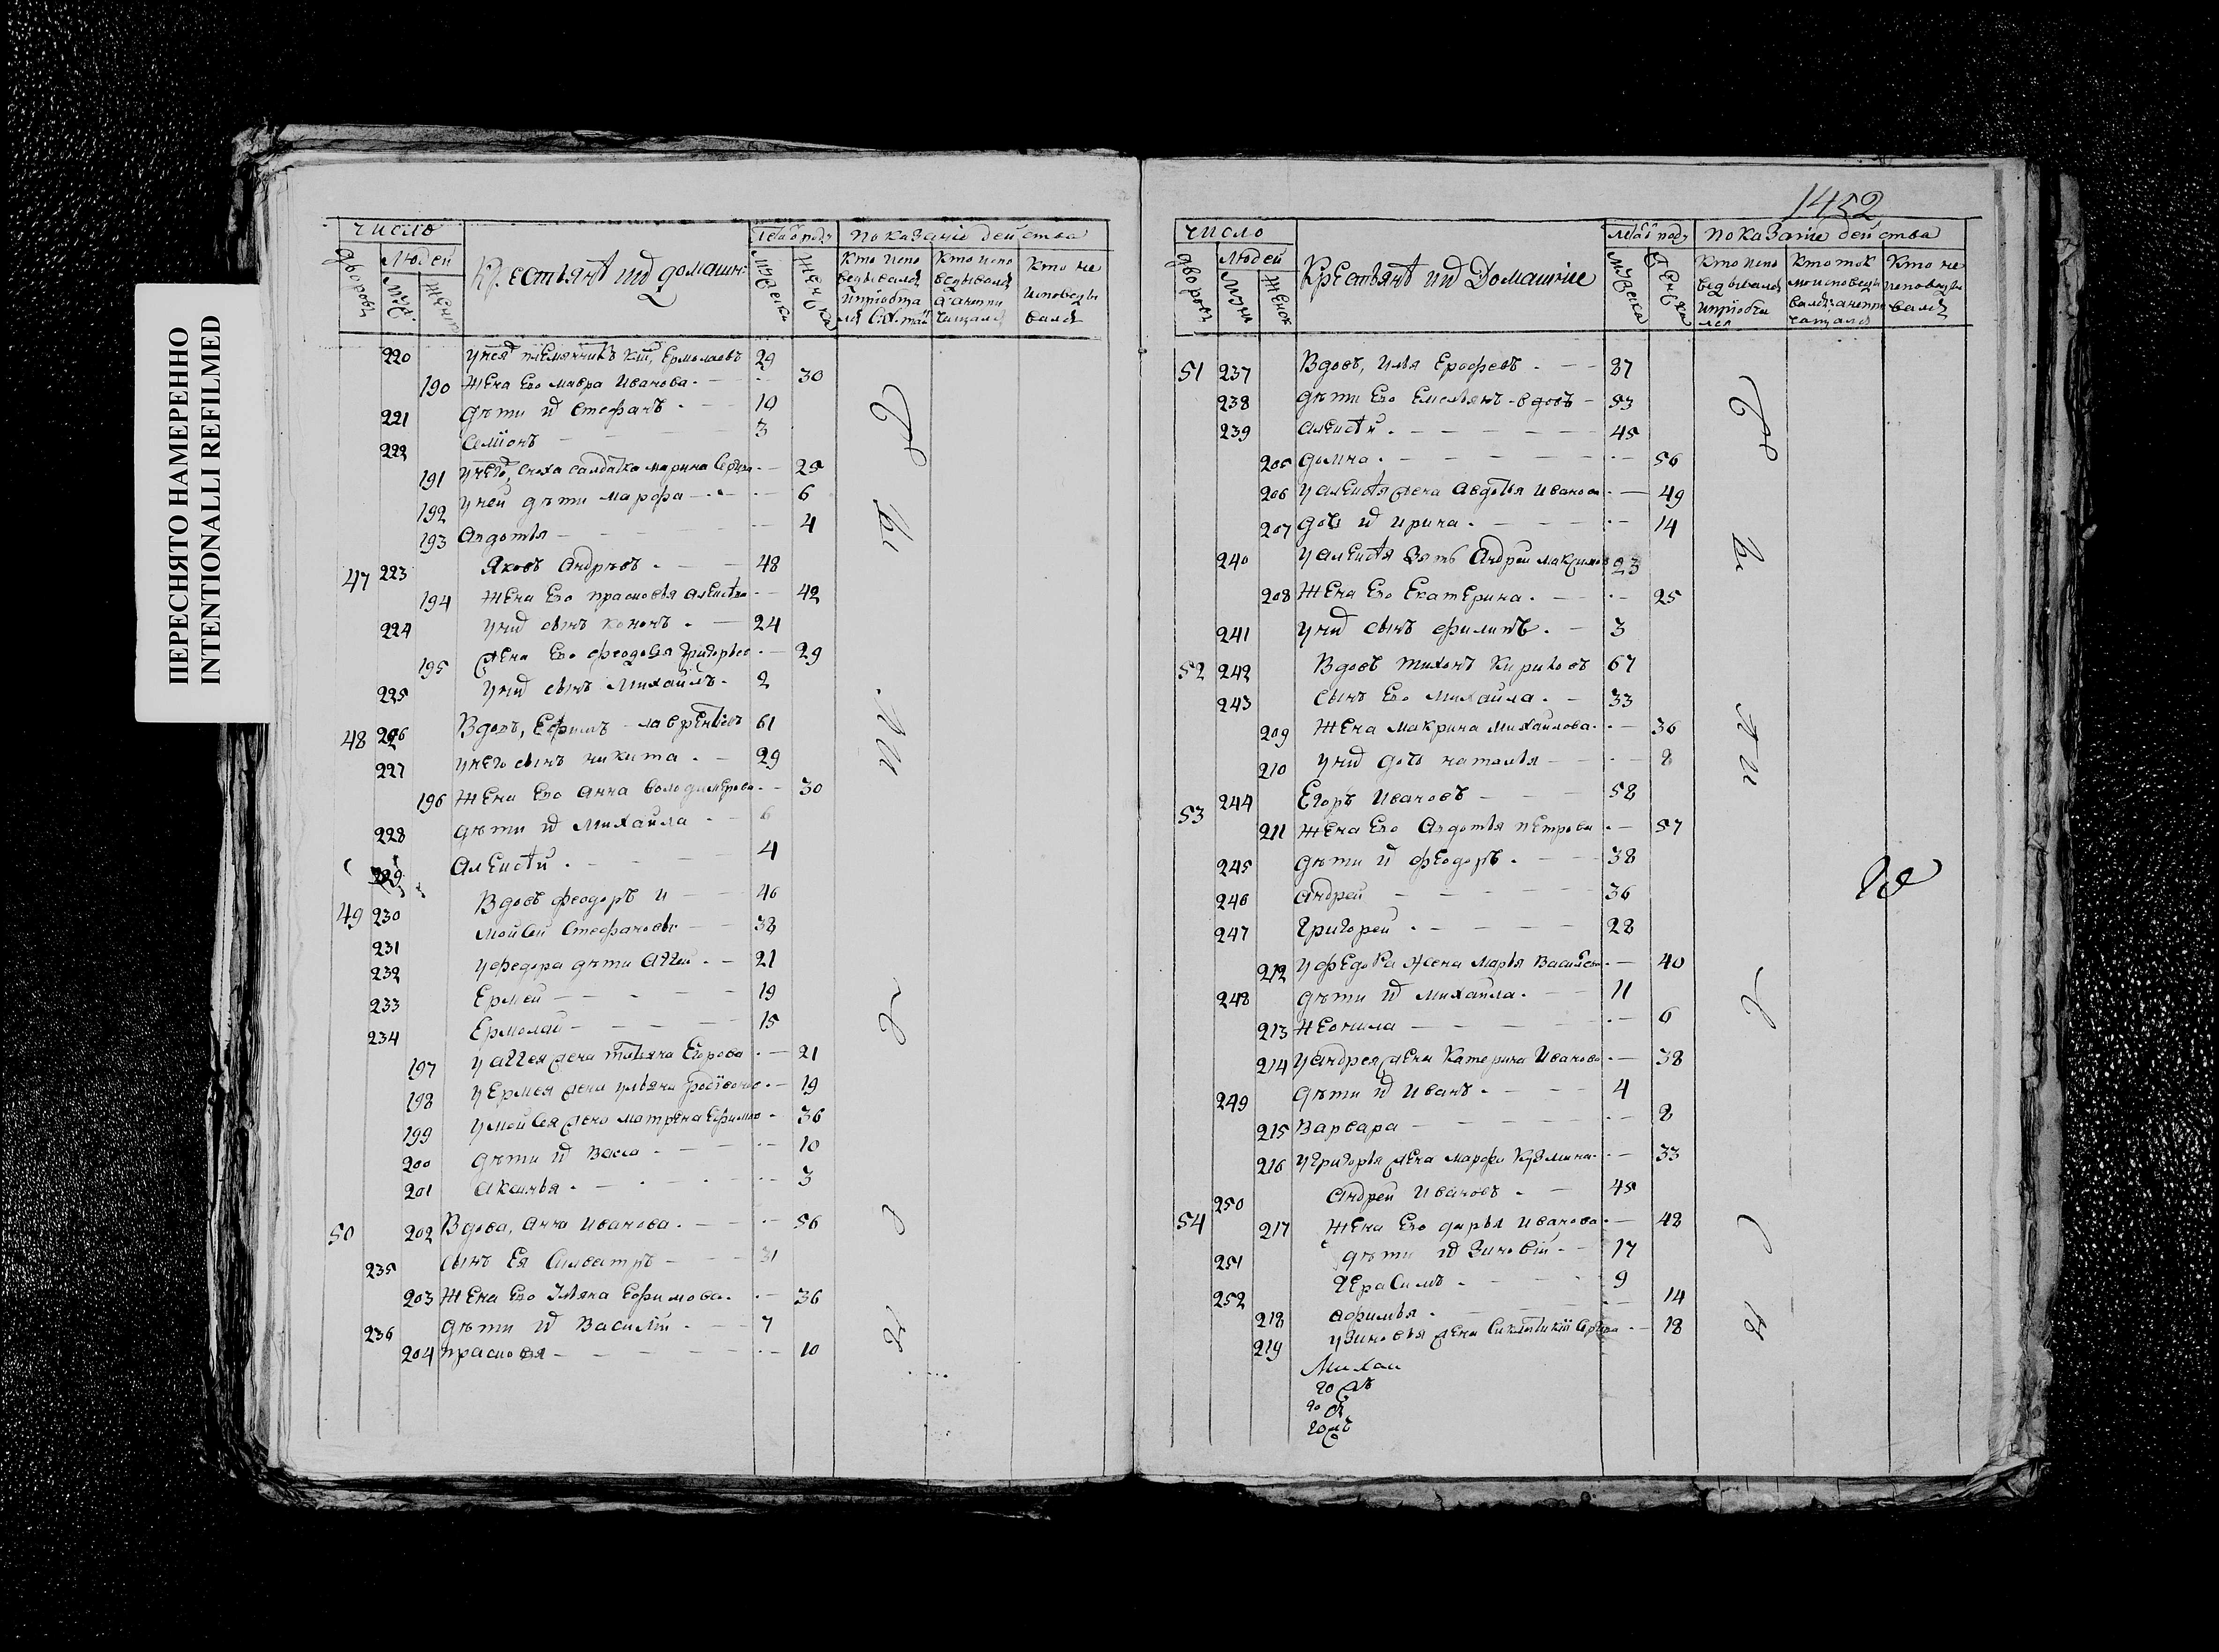 ПЕРЕСНЯТО НАМЕРЕННО
INTENTIONALLI REFILMED
число
дворовъ
людей
муж.
женъ
Крестьянѣ и домашн:
мужска
женска
показаніе действа
Кто испо
ведывалс
и пріобща
Кто испо
ведывалс
а непри
чащалс
Кто не
исповеды
валс
220 Унея племянникъ Ермолаевъ 29
190 Жена Его Мавра Иванова 30
221 дѣти Стефанъ 10
222 Семіонъ 3
191 Унего сноха салдатка Марина 25
192 Уней дѣти Марфа 6
193 Авдотья 4
47 223 Яковъ Андрѣевъ 48
194 Жена Его Прасковья 42
224 сынъ Кононъ 24
195 жена Его Феодосья 29
225 сынъ Михайлъ 2
48 226 Вдовъ, Ефимъ Лаврентьевъ 61
227 Унего сынъ Никита 29
196 Жена Его Анна Володимерова 30
228 дѣти Михайла 6
229 Алексѣй 4
49 230 Вдовъ Феодоръ и 46
231 Мойсей Стефановы 38
232 Уфедора дѣти Аггей 21
233 Ермей 19
234 Ермолай 15
197 У Аггея жена Татьяна Егорова 21
198 У Ермея жена Ульяна 19
199 У Мойсея жена Матрена Ефимова 36
200 дѣти Васса 10
201 Акилья 3
50 202 Вдова, Анна Иванова 56
235 сынъ Ея Силвестръ 31
203 Жена Его Ульяна Ефимова 36
236 дѣти Василій 7
204 Прасковья 10
1452
число
дворовъ
людей
мужи
женок
Крестьянѣ и Домашніе
мужска
женска
показаніе действа
Кто испо
ведывалс
и пріобщи
лся
Кто ток
мо исповеды
валс а непри
чащалс
Кто не
исповеды
валс
51 237 Вдовъ, Илья Ерофеевъ 87
238 дѣти Его Емельянъ вдовъ 53
239 Алексѣй 45
205 Домна 56
206 У Алексѣя жена Авдотья Иванова 49
207 дочь Ирина 14
240 У Алексѣя зять Андрей Максимов 23
208 Жена Его Екатерина 25
241 сынъ Филипъ 3
52 242 Вдовъ Тихонъ Кириловъ 67
243 Сынъ Его Михайла 33
209 Жена Макрина Михайлова 36
210 дочь Наталья 2
53 244 Егоръ Ивановъ 58
211 Жена Его Авдотья Петрова 57
245 дѣти Феодоръ 38
246 Андрей 36
247 Григорей 28
212 У Федора жена Марья Василева 40
248 дѣти Михайла 11
213 Неонила 6
214 У Андрея жена Катерина Иванова 38
249 дѣти Иванъ 4
215 Варвара 2
216 У Григорья жена Марфа Кузмина 33
54 250 Андрей Ивановъ 45
217 Жена Его Дарья Иванова 48
251 дѣти Зиновій 17
252 Герасимъ 9
218 Афимья 14
219 У Зиновья жена 18
Михаи